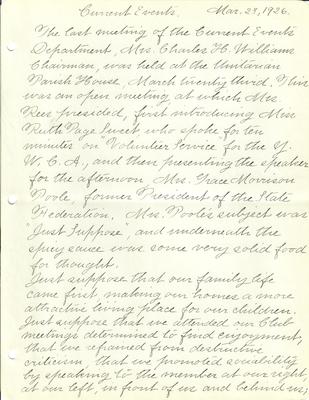 Current Events. Mar. 23, 1926.
The last meeting of the Current Events
Department, Mrs. Charles H. Williams
Chairman, was held at the Unitarian
Parish House, March twenty third. This
was an open meeting at which Mrs.
Rees presided, first introducing Miss
Ruth Page Sweet, who spoke for ten
minutes on "Volunteer Service for the Y.
W. C. A., and then presenting the speaker
for the afternoon Mrs. Grace Morrison
Poole, former President of the State
Federation. Mrs. Poole's subject was
"Just Suppose", and underneath the
spicy sauce was some very solid food
for thought.
Just suppose that our family life
came first making our homes a more
attractive living place for our children.
Just suppose that we attended our Club
meetings determined to find enjoyment,
that we refrained from destructive
criticism, that we promoted sociability
by speaking to the member at our right,
at our left, in front of us and behind us;